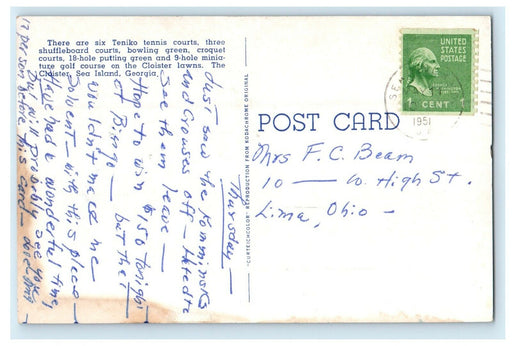 There are six Teniko tennis courts, three
shuffleboard courts, bowling green, croquet
courts, 18-hole putting green and 9-hole minia-
ture golf course on the Cloister lawns. The
Cloister, Sea Island, Georgia.
Thursday —
Just saw the
and Crouses off — Hated to
see them leave —
Hope to win $150 tonight
at Bingo — but that
wouldn't make me
Solvent — with this place —
Have had a wonderful time
Dru will probably see you
in person before this card — Love
"CURTEICHCOLOR" REPRODUCTION FROM KODACHROME ORIGINAL
POST CARD
UNITED
STATES
POSTAGE
1 CENT 1
SEA
1951
Mrs F. C. Beam
10 — W. High St.
Lima, Ohio —